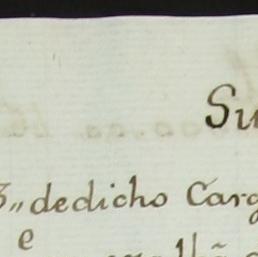 Su
3,, dedicho Carg
e